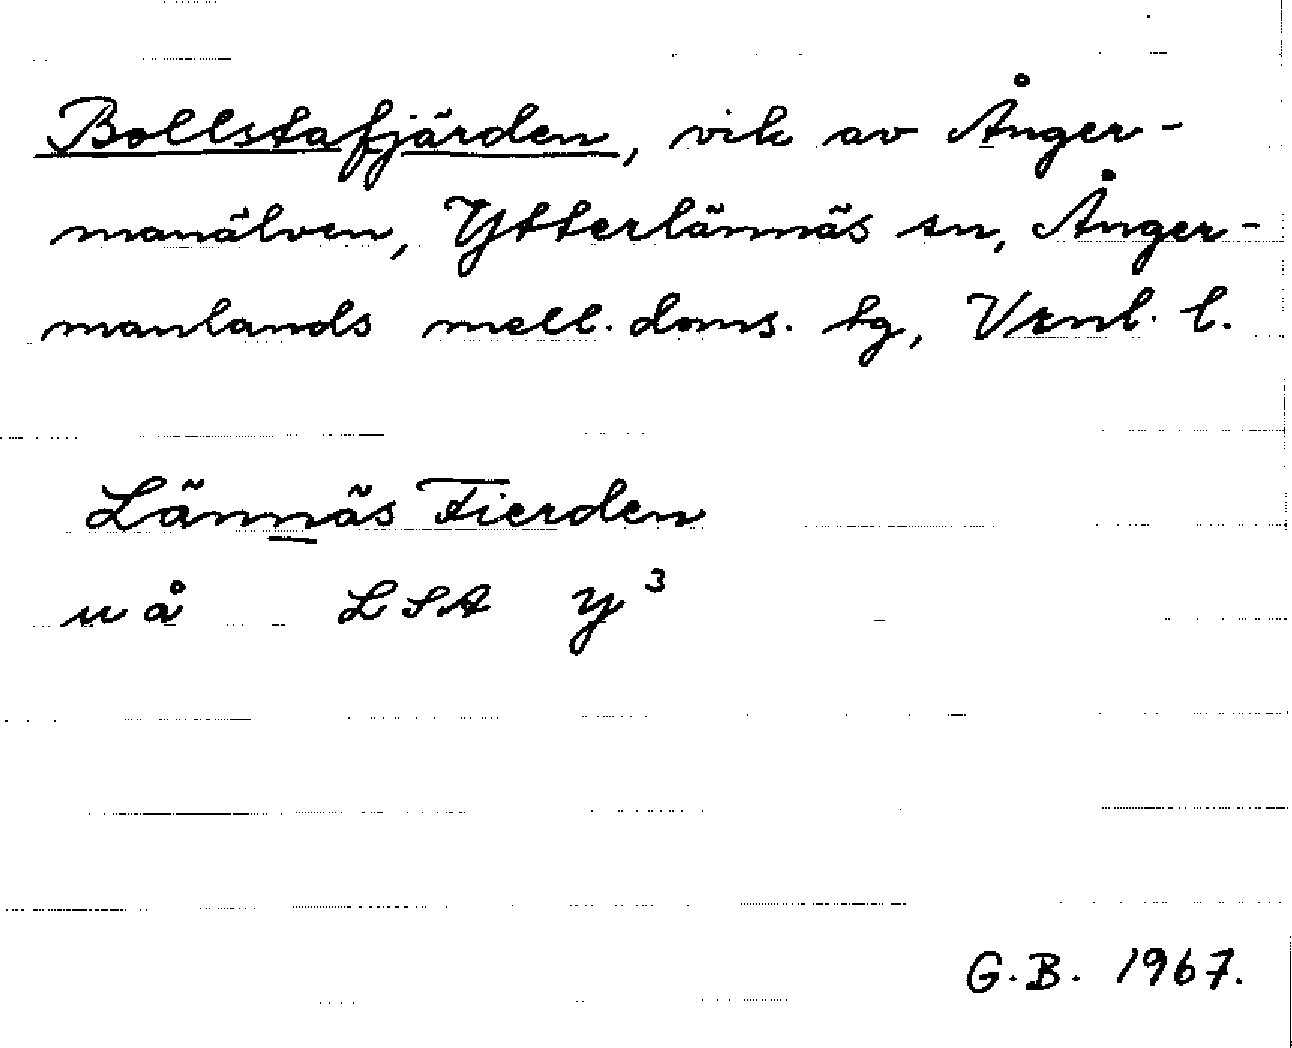 Bollstafjärden, vik av Ånger-
manälven, Ytterlännäs sn, Ånger-
manlands mell. doms. tg, Vrnl. l.
Lännäs Fierden
u å LSA Y³
G.B. 1967.